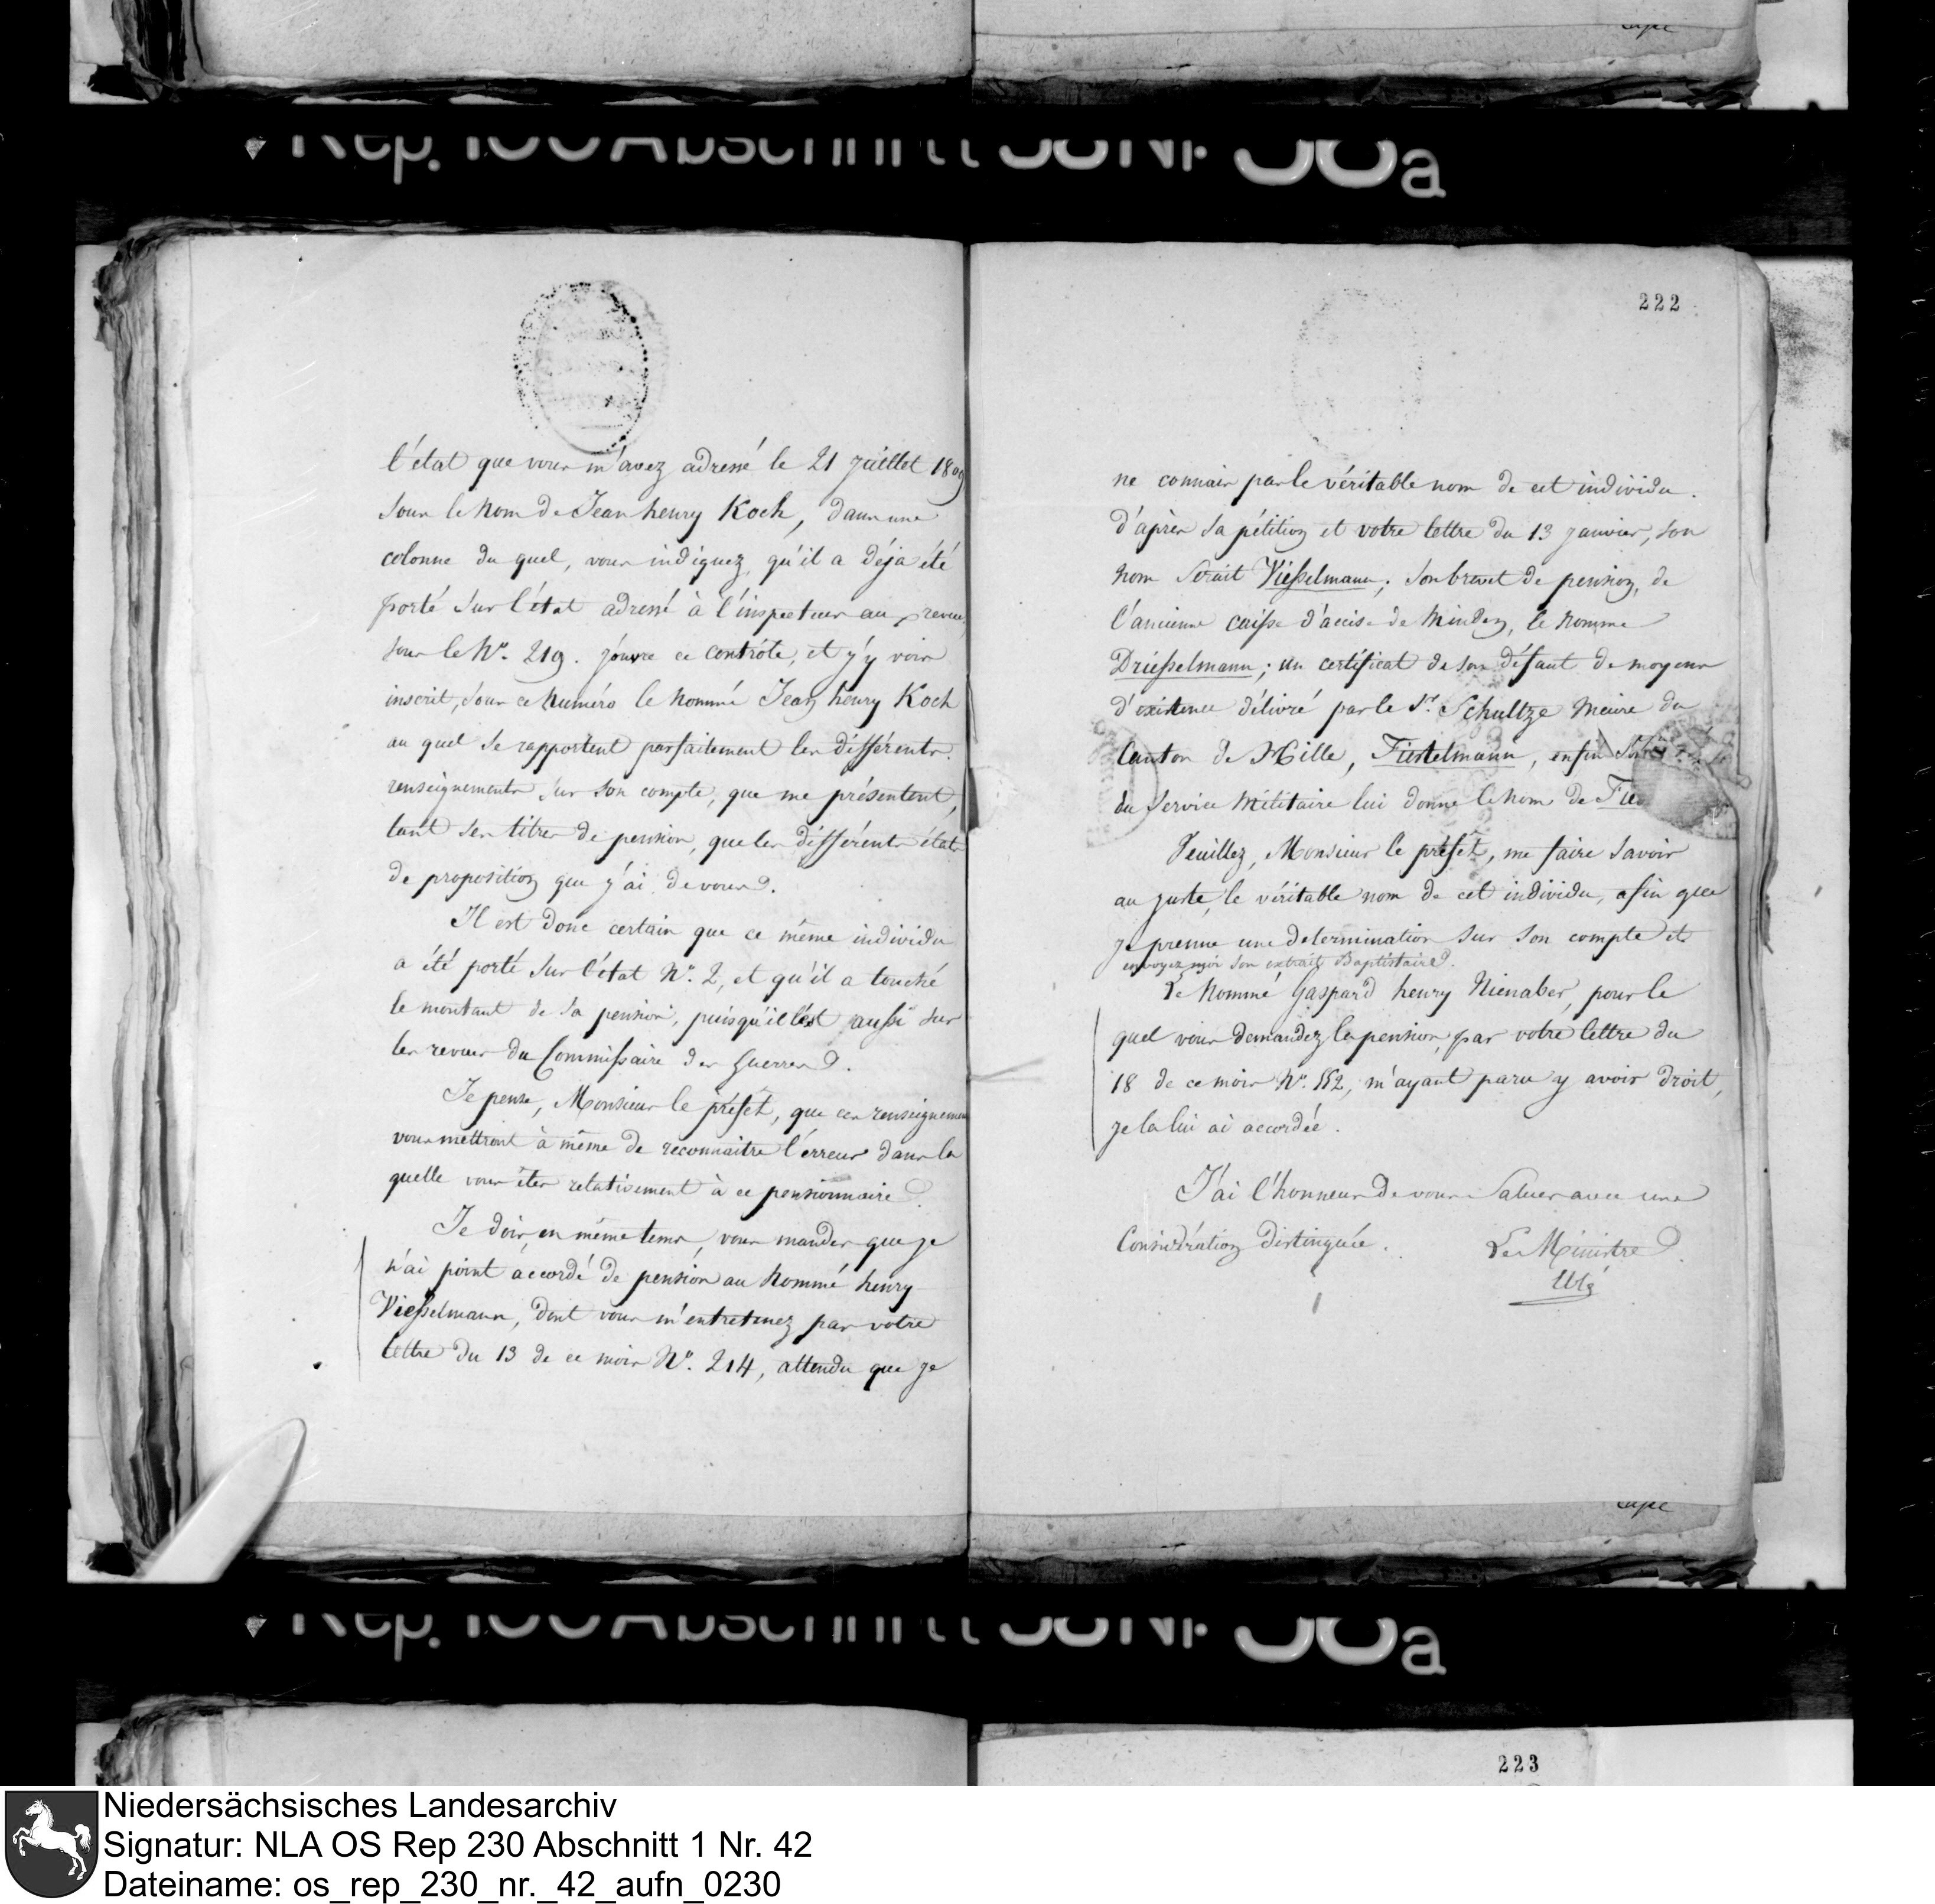 Rep. 100 Abschnitt 58 Nr 38a
l'état que vous m'avez adressé le 21 Juillet 1809
sous le Nom de Jean henry Koch, dans une
colonne du quel, vous indiquez, qu'il a déja été
porté sur l'état adressé à l'inspecteur au revues,
sous le No. 219. j'ouvre ce contrôle, et j'y vois
inscrit, sous ce Numéro le Nommé Jean henry Koch
au quel se rapportent parfaitement les différents
renseignements sur son compte, que me présentent,
tant ses titres de pension, que les différents états
de proposition que j'ai de vous.
Il est donc certain que ce même individu
a été porté sur l'état No. 2, et qu'il a touché
le montant de sa pension, puisqu'il l'est aussi sur
les revues du Commissaire des Guerres.
Je pense, Monsieur le préfet, que ces renseignemens
vous mettront à même de reconnaitre l'erreur dans la
quelle vous êtes relativement à ce pensionnaire.
Je dois, en même tems, vous mander que je
n'ai point accordé de pension au Nommé henry
Viesselmann, dont vous m'entretenez par votre
lettre du 13 de ce mois No. 214, attendu que je
222
ne connais pas le véritable nom de cet individu.
d'après sa pétition et votre lettre du 13 Janvier, son
nom serait Viesselmann; son brevet de pension, de
l'ancienne caisse d'accise de Minden, le Nomme
Driesselmann; un certificat de son défaut de moyens
d'existence délivré par le Sr. Schultze Maire du
Canton de Hille, Fiestelmann, enfin
du service Militaire lui donne le Nom de
Veuillez, Monsieur le préfet, me faire savoir
au juste, le véritable nom de cet individu, afin que
je prenne une determination sur son compte et
envoyez moi son extrait Baptistaire.
Le Nommé Gaspard henry Nienaber, pour le
quel vous demandez la pension, par votre lettre du
18 de ce mois No. 152, m'ayant paru y avoir droit,
je la lui ai accordée.
J'ai l'honneur de vous Saluer avec une
Considération distinguée.
Le Ministre
Rep. 100 Abschnitt 58 Nr 38a
223
Niedersächsisches Landesarchiv
Signatur: NLA OS Rep 230 Abschnitt 1 Nr. 42
Dateiname: os_rep_230_nr._42_aufn_0230